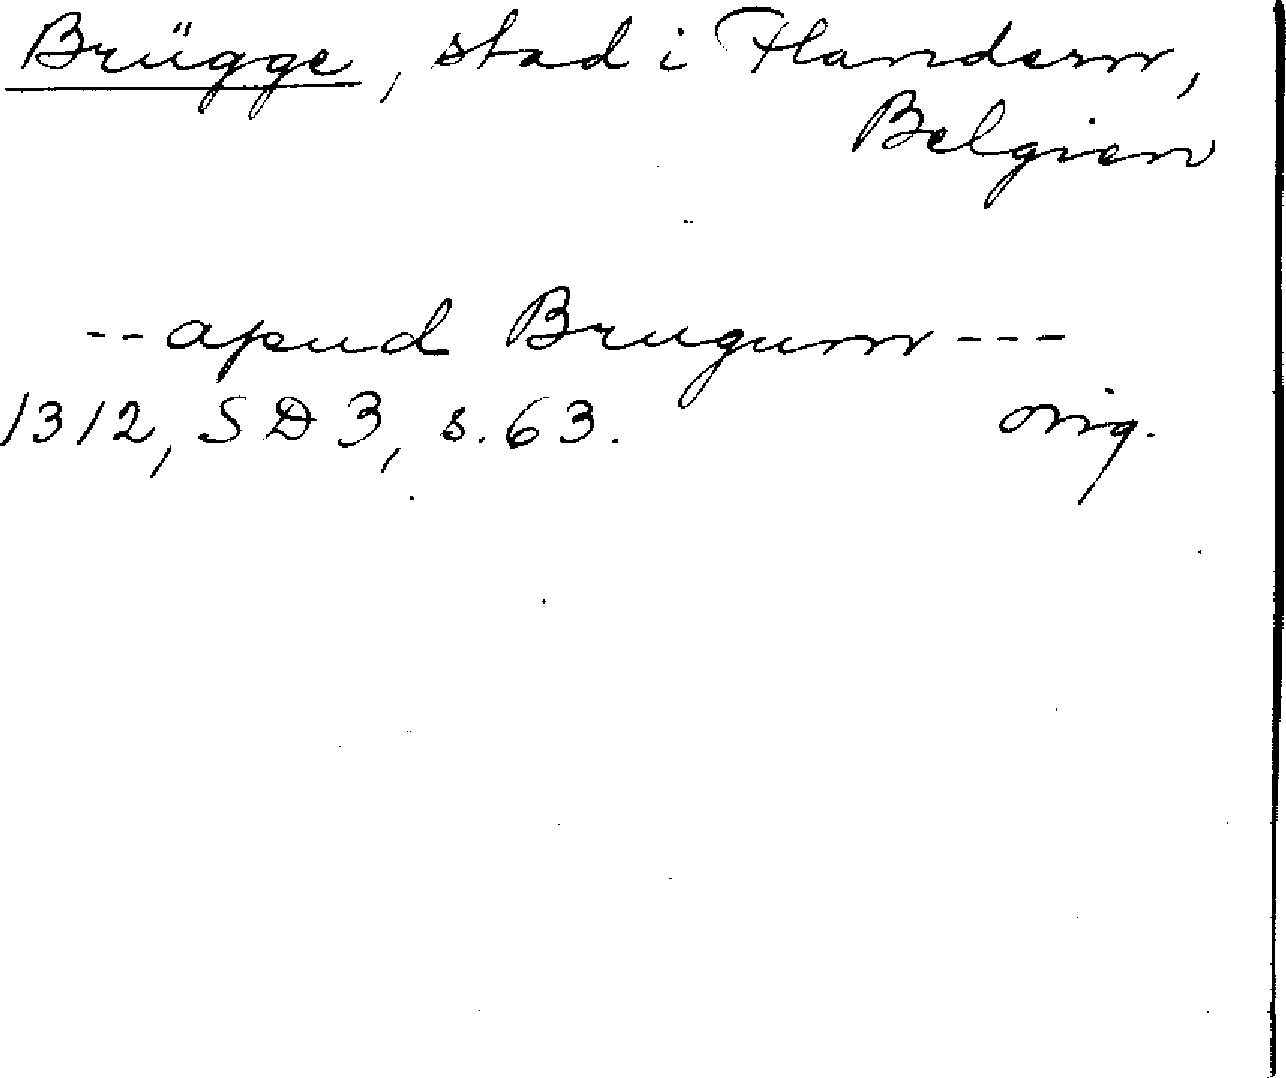 Brügge, stad i Flandern,
Belgien
-- apud Brugum ---
1312, SD 3, s. 63. orig.